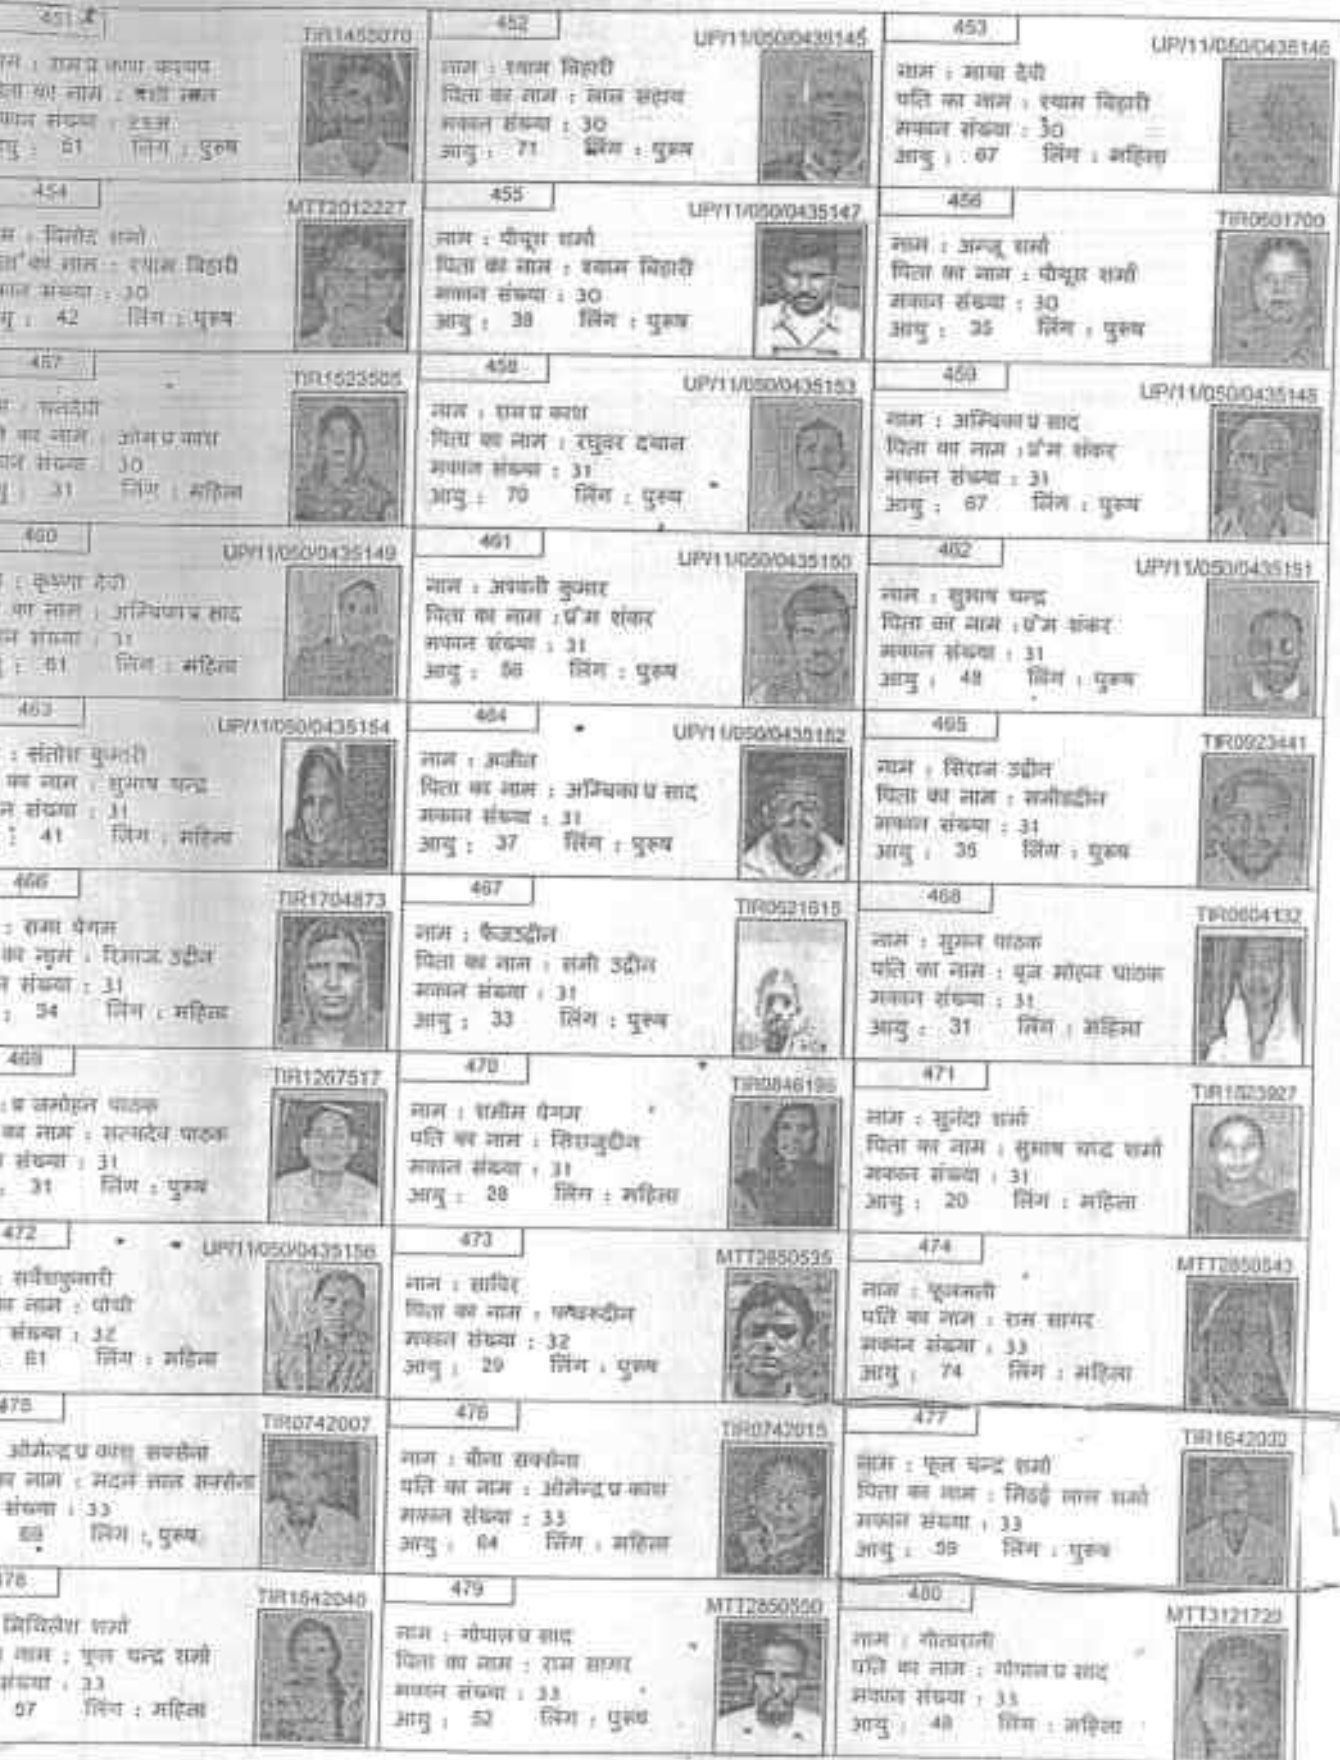 451
TIR1455070
पिता का नाम :
मकान संख्या :
आयु : 61 लिंग : पुरुष
452
UP/11/050/0435145
नाम : श्याम बिहारी
पिता का नाम : लाल सहाय
मकान संख्या : 30
आयु : 71 लिंग : पुरुष
453
UP/11/050/0435146
नाम : माया देवी
पति का नाम : श्याम बिहारी
मकान संख्या : 30
आयु : 67 लिंग : महिला
454
MTT2012227
म : विनोद शर्मा
ता का नाम : श्याम बिहारी
कान संख्या : 30
यु : 42 लिंग : पुरुष
455
UP/11/050/0435147
नाम : पीयूश शर्मा
पिता का नाम : श्याम बिहारी
मकान संख्या : 30
आयु : 38 लिंग : पुरुष
456
TIR0601700
नाम : अन्जू शर्मा
पिता का नाम : पीयूश शर्मा
मकान संख्या : 30
आयु : 35 लिंग : पुरुष
457
TIR1523505
का नाम : ओमप्रकाश
संख्या : 30
31 लिंग : महिला
458
UP/11/050/0435153
नाम : रामप्रकाश
पिता का नाम : रघुवर दयाल
मकान संख्या : 31
आयु : 70 लिंग : पुरुष
459
UP/11/050/0435148
नाम : अम्बिकाप्रसाद
पिता का नाम : प्रेम शंकर
मकान संख्या : 31
आयु : 67 लिंग : पुरुष
460
UP/11/050/0435149
: कृष्णा देवी
का नाम : अम्बिकाप्रसाद
न संख्या : 31
: 61 लिंग : महिला
461
UP/11/050/0435150
नाम : अश्वनी कुमार
पिता का नाम : प्रेम शंकर
मकान संख्या : 31
आयु : 56 लिंग : पुरुष
462
UP/11/050/0435151
नाम : सुभाष चन्द्र
पिता का नाम : प्रेम शंकर
मकान संख्या : 31
आयु : 48 लिंग : पुरुष
463
UP/11/050/0435154
: संतोश कुमारी
का नाम : सुभाष चन्द्र
न संख्या : 31
: 41 लिंग : महिला
464
UP/11/050/0435152
नाम : अजीत
पिता का नाम : अम्बिकाप्रसाद
मकान संख्या : 31
आयु : 37 लिंग : पुरुष
465
TIR0923441
नाम : सिराज उद्दीन
पिता का नाम : समीउद्दीन
मकान संख्या : 31
आयु : 35 लिंग : पुरुष
466
TIR1704873
: शमा बेगम
का नाम : उद्दीन
न संख्या : 31
: 34 लिंग : महिला
467
TIR0621615
नाम : फैजउद्दीन
पिता का नाम : समी उद्दीन
मकान संख्या : 31
आयु : 33 लिंग : पुरुष
468
TIR0604132
नाम : सुमन पाठक
पति का नाम : बृज मोहन पाठक
मकान संख्या : 31
आयु : 31 लिंग : महिला
469
TIR1267517
: ब्रजमोहन पाठक
का नाम : सत्यदेव पाठक
संख्या : 31
: 31 लिंग : पुरुष
470
TIR0846196
नाम : शमीम बेगम
पति का नाम : सिराजुद्दीन
मकान संख्या : 31
आयु : 28 लिंग : महिला
471
TIR1523927
नाम : सुनंदा शर्मा
पिता का नाम : सुभाष चन्द्र शर्मा
मकान संख्या : 31
आयु : 20 लिंग : महिला
472
UP/11/050/0435156
: सर्वेशकुमारी
का नाम : पोथी
संख्या : 32
61 लिंग : महिला
473
MTT2850535
नाम : साबिर
पिता का नाम :
मकान संख्या : 32
आयु : 29 लिंग : पुरुष
474
MTT2850543
नाम : फूलमती
पति का नाम : राम सागर
मकान संख्या : 33
आयु : 74 लिंग : महिला
475
TIR0742007
ओमेन्द्रप्रकाश सक्सेना
का नाम : मदन लाल सक्सेना
संख्या : 33
लिंग : पुरुष
476
TIR0742015
नाम : बीना सक्सेना
पति का नाम : ओमेन्द्रप्रकाश
मकान संख्या : 33
आयु : 64 लिंग : महिला
477
TIR1642032
नाम : फूल चन्द्र शर्मा
पिता का नाम : लाल शर्मा
मकान संख्या : 33
आयु : 59 लिंग : पुरुष
478
TIR1642040
मिथिलेश शर्मा
नाम : फूल चन्द्र शर्मा
संख्या : 33
57 लिंग : महिला
479
MTT2850550
नाम : गोपालप्रसाद
पिता का नाम : राम सागर
मकान संख्या : 33
आयु : 52 लिंग : पुरुष
480
MTT3121720
नाम : गीतारानी
पति का नाम : गोपालप्रसाद
मकान संख्या : 33
आयु : 48 लिंग : महिला